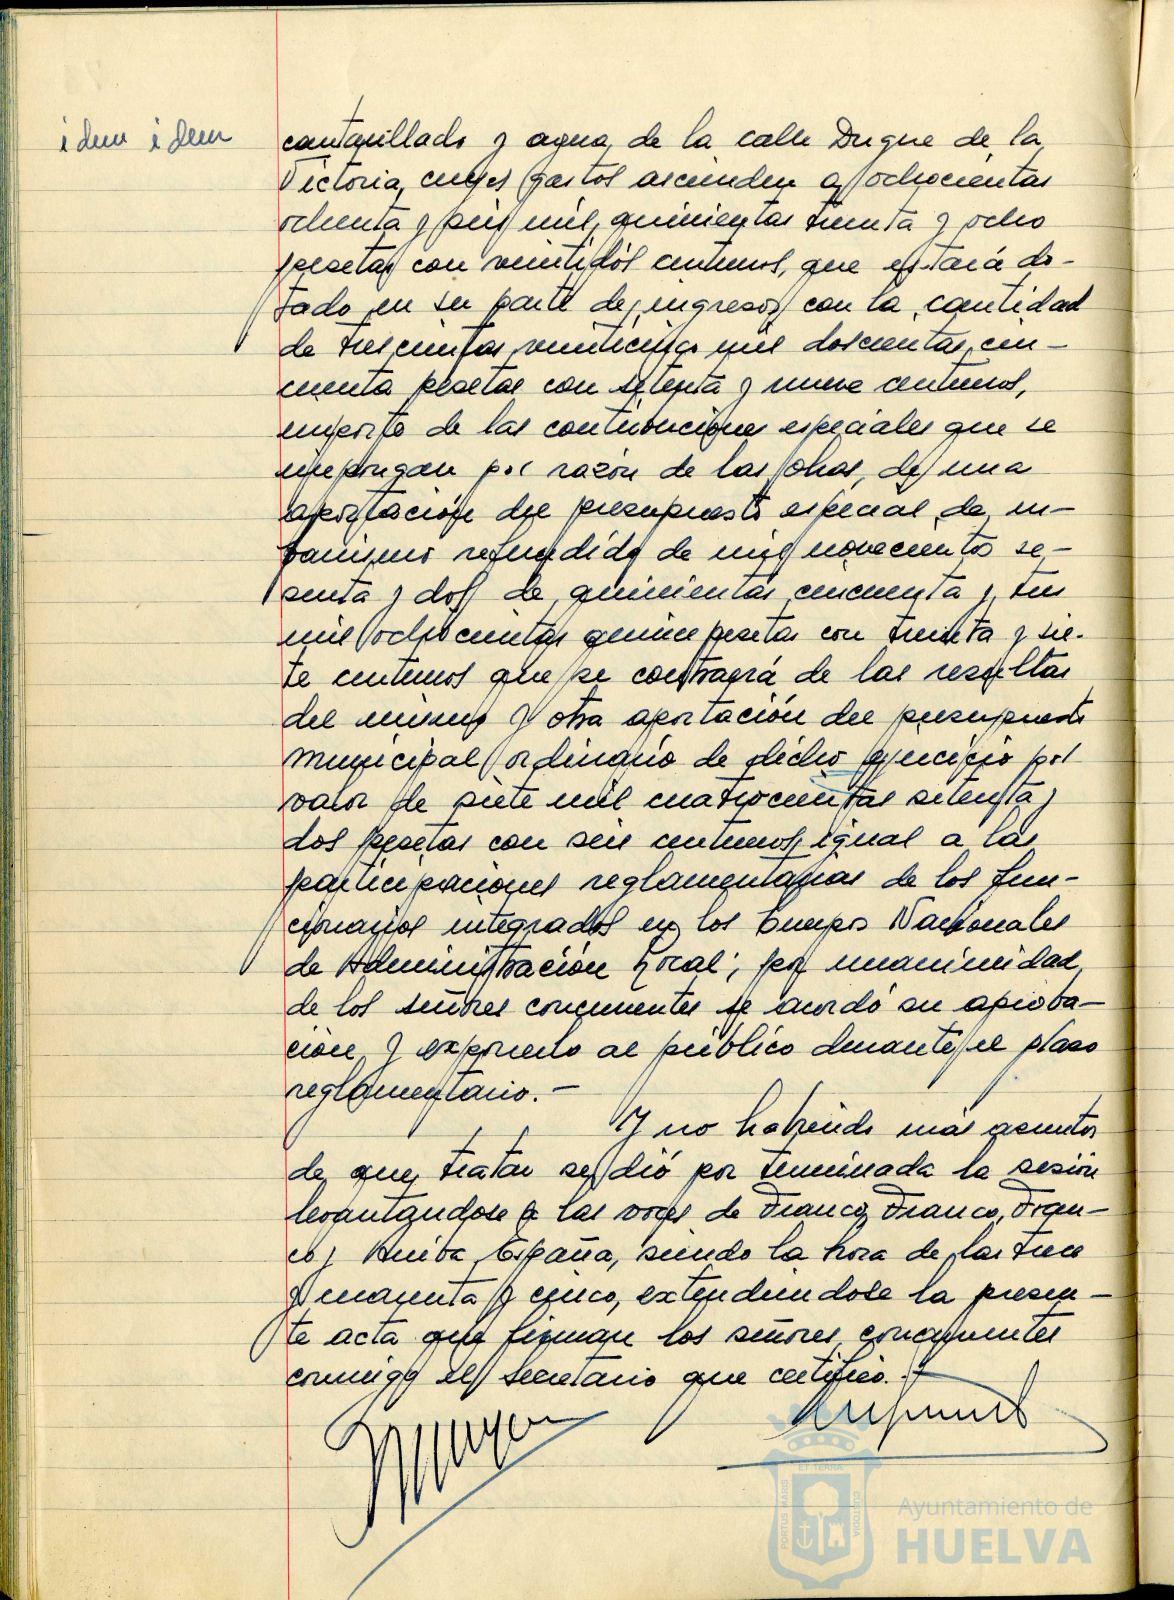 idem idem
cantarillado y agua de la calle Duque de la
Victoria, cuyos gastos ascienden a ochocientas
ochenta y seis mil quinientas treinta y ocho
pesetas con veintidós centimos, que estará do-
tado en su parte de ingresos con la cantidad
de trescientas veinticinco mil doscientas cin-
cuenta pesetas con setenta y nueve centimos,
importe de las contribuciones especiales que se
impongan por razón de las obras, de una
aportación del presupuesto especial de ur-
banismo refundido de mil novecientos se-
senta y dos de quinientas cincuenta y tres
mil ochocientas quince pesetas con treinta y sie-
te centimos que se contraerá de las resultas
del mismo y otra aportación del presupuesto
municipal ordinario de dicho ejercicio por
valor de siete mil cuatrocientas setenta y
dos pesetas con seis centimos igual a las
participaciones reglamentarias de los fun-
cionarios integrados en los Cuerpos Nacionales
de Administración Local; por unanimidad
de los señores concurrentes se acordó su aproba-
ción y exponerlo al público durante el plazo
reglamentario.-
Y no habiendo más asuntos
de que tratar se dió por terminada la sesión
levantandose a las voces de Franco, Franco, Fran-
co y Arriba España, siendo la hora de las trece
y cuarenta y cinco, extendiendose la presen-
te acta que firman los señores concurrentes
conmigo el Secretario que certifico.-
PORTUS MARIS
ET TERRAE
CUSTODIA
Ayuntamiento de
HUELVA